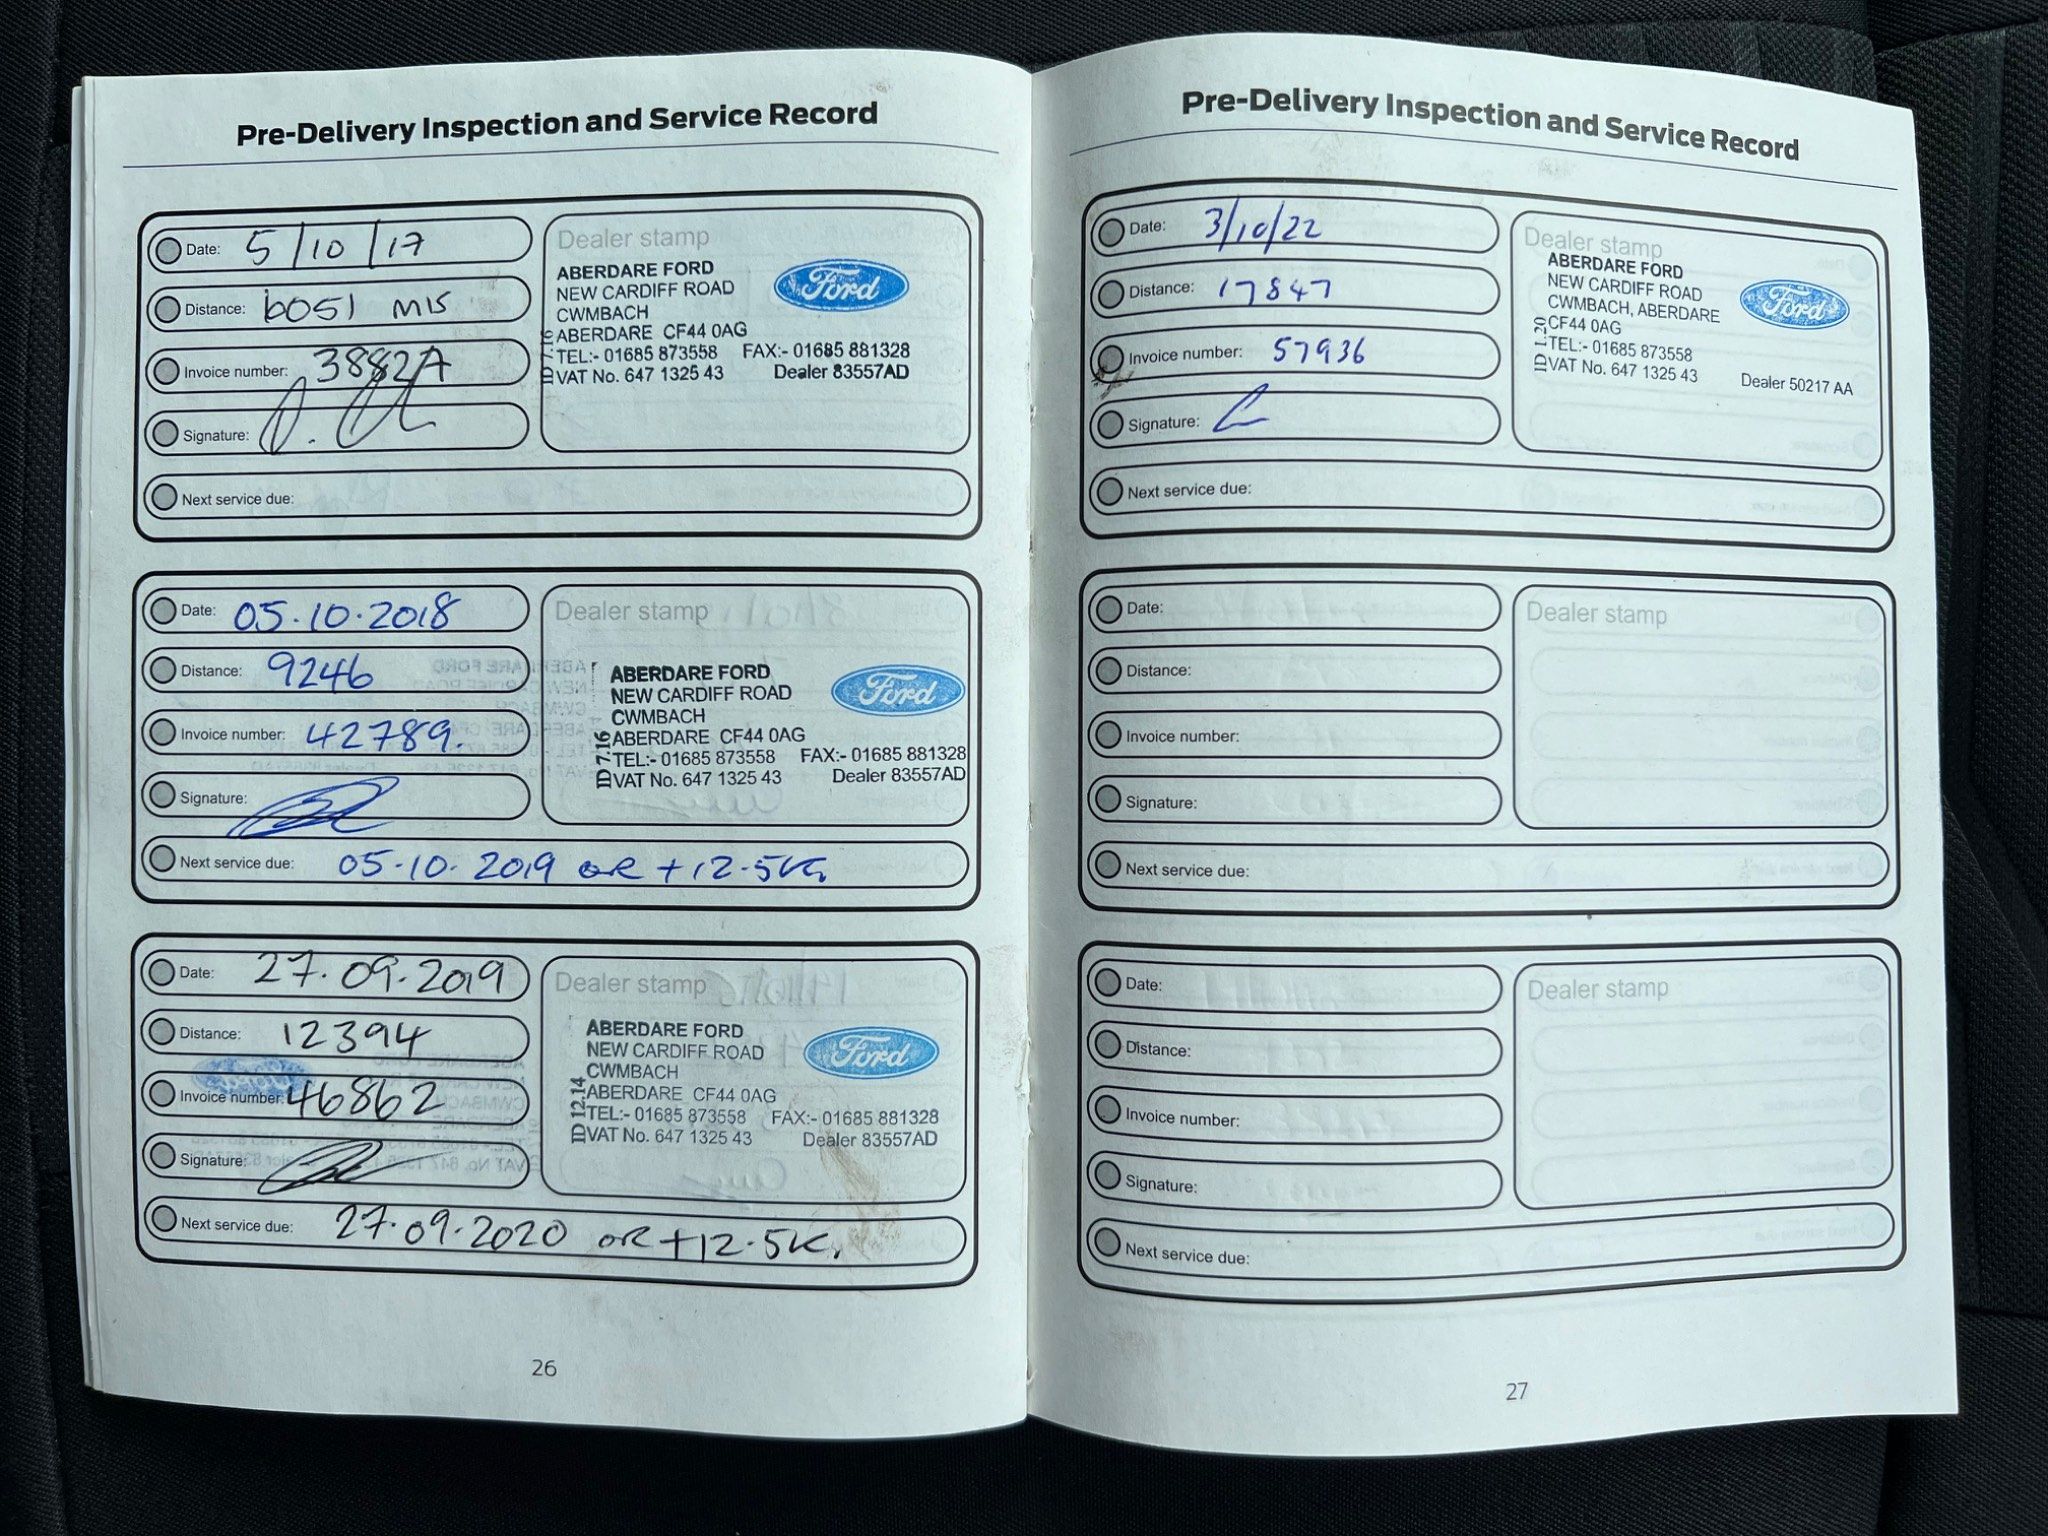 Pre-Delivery Inspection and Service Record
Date: 5/10/17
Distance: 6051 MLS
Invoice number: 38827A
Signature:
Next service due:
Dealer stamp
ABERDARE FORD
NEW CARDIFF ROAD
CWMBACH
ABERDARE CF44 0AG
TEL:- 01685 873558 FAX:- 01685 881328
VAT No. 647 1325 43 Dealer 83557AD
Ford
Date: 05.10.2018
Distance: 9246
Invoice number: 42789.
Signature:
Next service due: 05.10.2019 OR +12.5K
Dealer stamp
ABERDARE FORD
NEW CARDIFF ROAD
CWMBACH
ABERDARE CF44 0AG
TEL:- 01685 873558 FAX:- 01685 881328
VAT No. 647 1325 43 Dealer 83557AD
ID 7.16
Ford
Date: 27.09.2019
Distance: 12394
Invoice number: 46862
Signature:
Next service due: 27.09.2020 OR +12.5K
Dealer stamp
ABERDARE FORD
NEW CARDIFF ROAD
CWMBACH
ABERDARE CF44 0AG
TEL:- 01685 873558 FAX:- 01685 881328
VAT No. 647 1325 43 Dealer 83557AD
ID 12.14
Ford
26
Pre-Delivery Inspection and Service Record
Date: 3/10/22
Distance: 17847
Invoice number: 57936
Signature:
Next service due:
Dealer stamp
ABERDARE FORD
NEW CARDIFF ROAD
CWMBACH, ABERDARE
CF44 0AG
TEL:- 01685 873558
VAT No. 647 1325 43 Dealer 50217 AA
ID 1.20
Ford
Date:
Distance:
Invoice number:
Signature:
Next service due:
Dealer stamp
Date:
Distance:
Invoice number:
Signature:
Next service due:
Dealer stamp
27